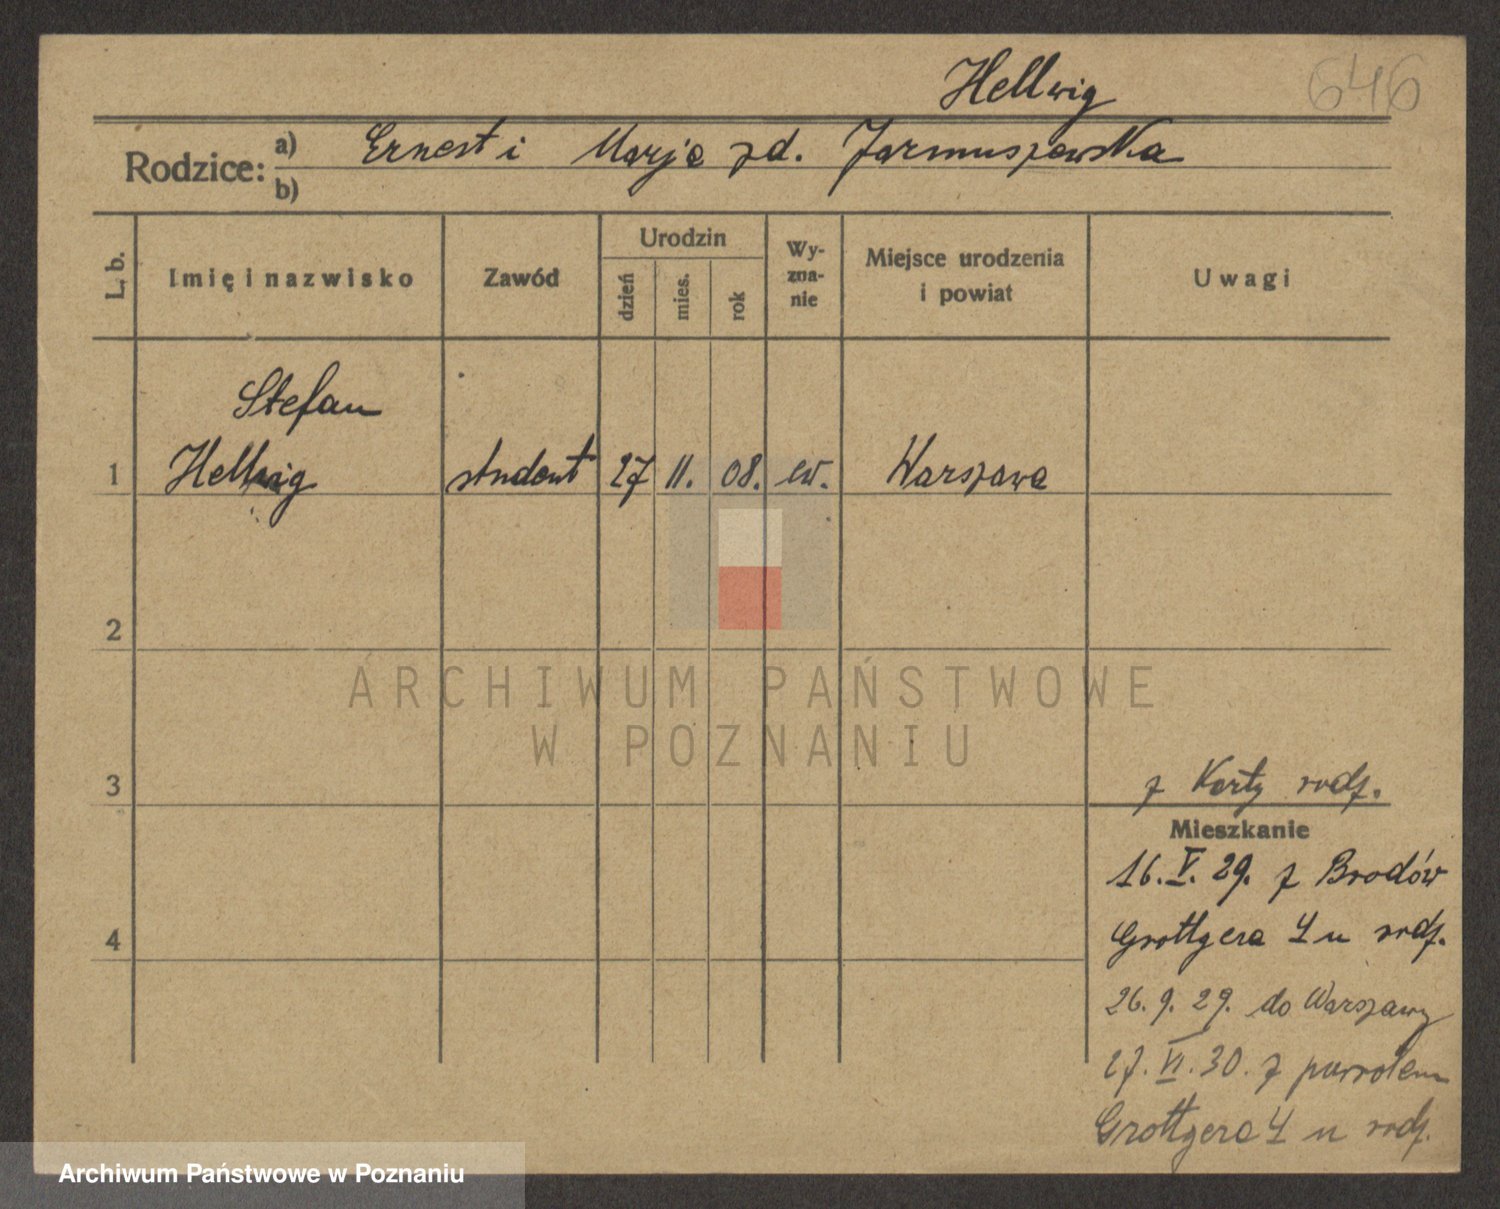 Hellwig
646
Rodzice: a) Ernest i Marja zd. Jarmuszewska
b)
L. b.
Imię i nazwisko
Zawód
Urodzin
dzień
mies.
rok
Wy-
zna-
nie
Miejsce urodzenia
i powiat
Uwagi
Stefan
1 Hellwig student 27 11. 08. ew. Warszawa
2
ARCHIWUM PAŃSTWOWE
W POZNANIU
3
z Karty rodz.
Mieszkanie
16. V. 29. z Brodów
4
Grottgera 4 u rodz.
26. 9. 29. do Warszawy
27. VI. 30. z
Grottgera 4 u rodz.
Archiwum Państwowe w Poznaniu